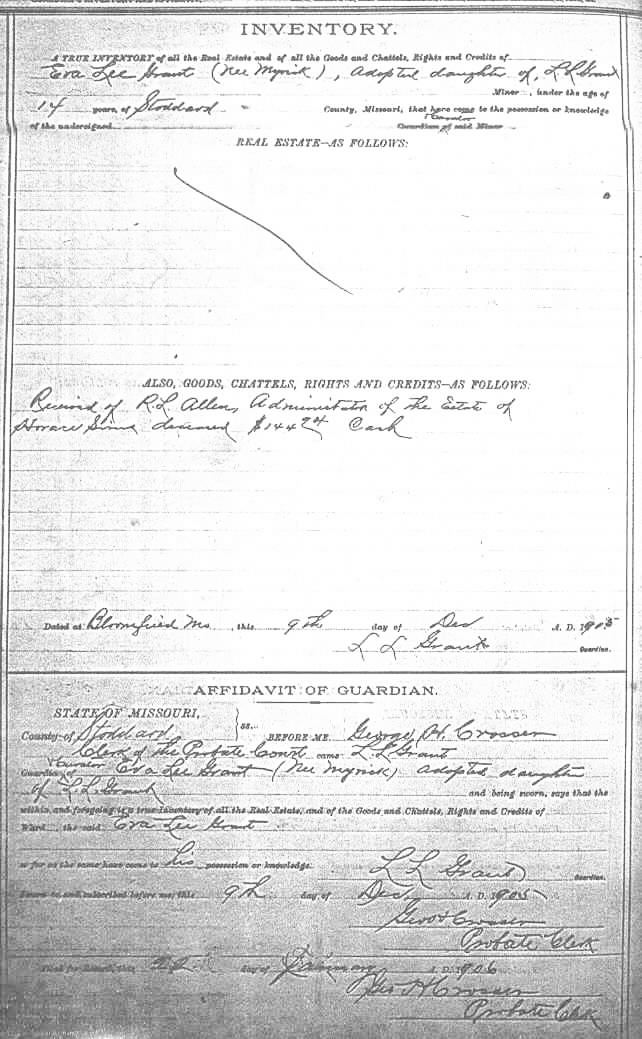 INVENTORY.
A TRUE INVENTORY of all the Real Estate and of all the Goods and Chattels, Rights and Credits of
Eva Lee Grant (Nee Myrick), Adopted daughter of, L L Grant
Minor, under the age of
14 years, of Stoddard County, Missouri, that have come to the possession or knowledge
Curator
of the undersigned Guardian of said Minor
REAL ESTATE—AS FOLLOWS:
ALSO, GOODS, CHATTELS, RIGHTS AND CREDITS—AS FOLLOWS:
Received of R.L. Allen, Administrator of the Estate of
Horace Sims deceased $144 24 Cash
Dated at Bloomfield Mo, this 9th day of Dec A. D. 1905
L L Grant Guardian.
AFFIDAVIT OF GUARDIAN.
STATE OF MISSOURI,
County of Stoddard ss. BEFORE ME George H. Crosser
Clerk of the Probate Court came L L Grant
Curator
Guardian of Eva Lee Grant (Nee Myrick) Adopted daughter
of L L Grant and being sworn, says that the
within and foregoing is a true Inventory of all the Real Estate, and of the Goods and Chattels, Rights and Credits of
Ward, the said Eva Lee Grant
so far as the same have come to his possession or knowledge.
L L Grant Guardian.
Sworn to and subscribed before me, this 9th day of Dec A. D. 1905
Geo H Crosser
Probate Clerk
Filed for Record, this 22 day of January A. D. 1906
Geo H Crosser
Probate Clerk